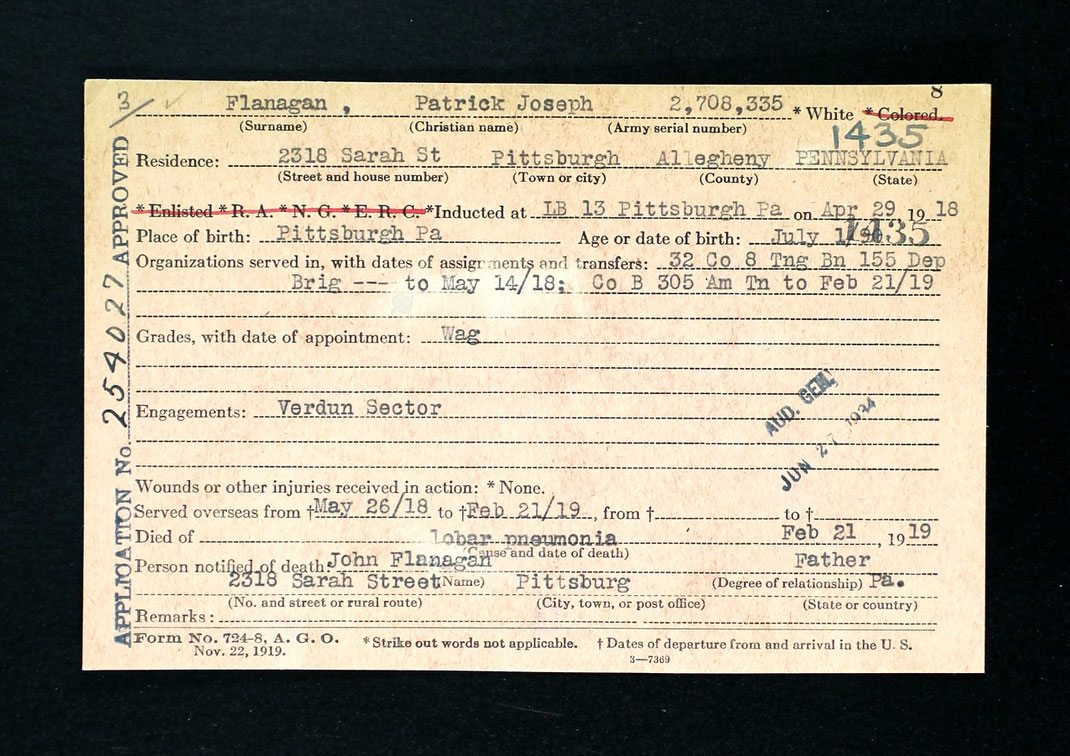 3/ 8
Flanagan , Patrick Joseph 2,708,335 * White * Colored.
(Surname) (Christian name) (Army serial number) 1435
Residence: 2318 Sarah St Pittsburgh Allegheny PENNSYLVANIA
(Street and house number) (Town or city) (County) (State)
* Enlisted * R. A. * N. G. * E. R. C. * Inducted at LB 13 Pittsburgh Pa on Apr 29 19 18
Place of birth: Pittsburgh Pa Age or date of birth: July 1/ 1435
Organizations served in, with dates of assignments and transfers: 32 Co 8 Tng Bn 155 Dep
Brig --- to May 14/18; Co B 305 Am Tn to Feb 21/19
Grades, with date of appointment: Wag
Engagements: Verdun Sector
AUD. GEN.
JUN 27 1934
Wounds or other injuries received in action: * None.
Served overseas from † May 26/18 to † Feb 21/19, from † to †
Died of lobar pneumonia Feb 21, 19 19
(Cause and date of death)
Person notified of death: John Flanagan Father
2318 Sarah Street (Name) Pittsburg (Degree of relationship) Pa.
(No. and street or rural route) (City, town, or post office) (State or country)
Remarks:
Form No. 724-8, A. G. O. * Strike out words not applicable. † Dates of departure from and arrival in the U. S.
Nov. 22, 1919. 3—7369
APPLICATION No. 254027 APPROVED